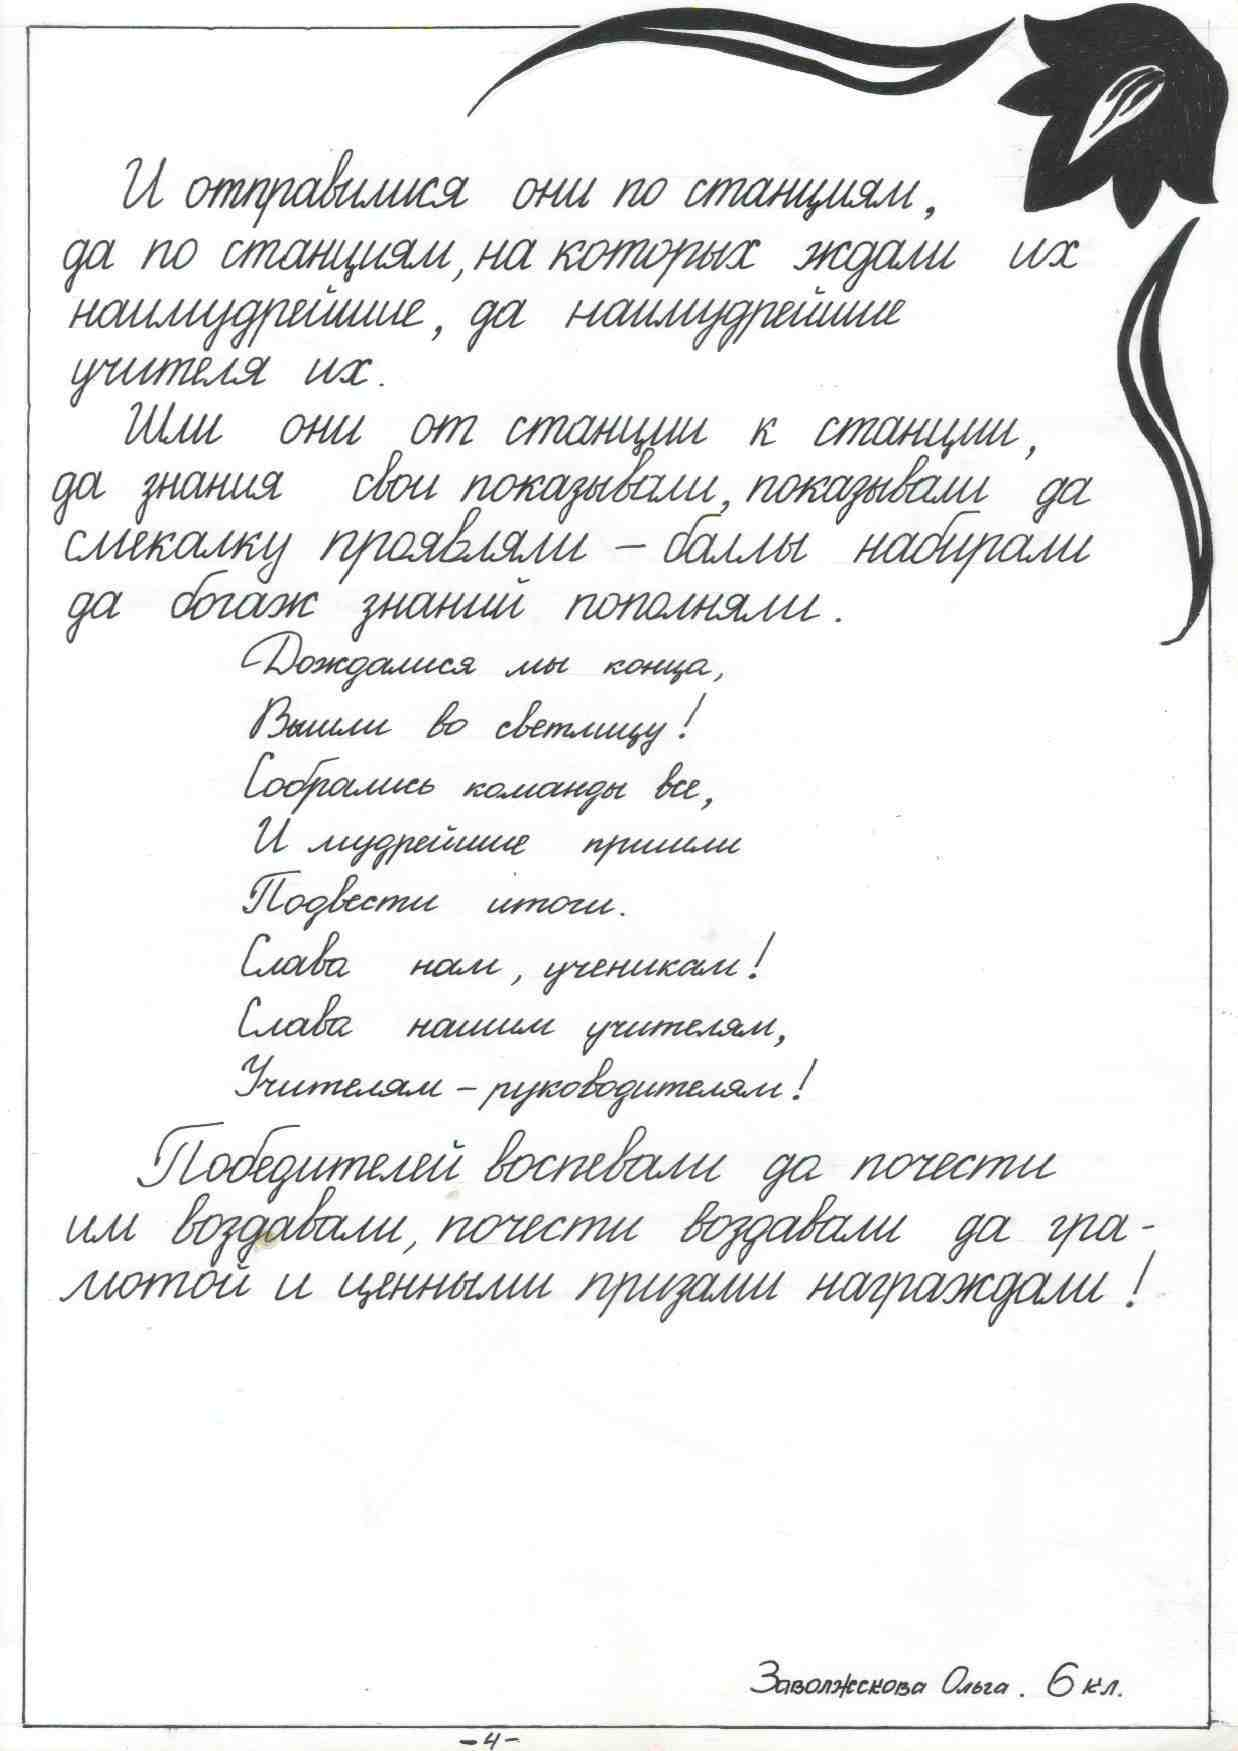 И отправилися они по станциям,
да по станциям, на которых ждали их
наимудрейшие, да наимудрейшие
учителя их.
Шли они от станции к станции,
да знания свои показывали, показывали да
смекалку проявляли – баллы набирали
да богаж знаний пополняли.
Дождалися мы конца,
Вышли во светлицу!
Собрались команды все,
И мудрейшие пришли
Подвести итоги.
Слава нам, ученикам!
Слава нашим учителям,
Учителям – руководителям!
Победителей воспевали да почести
им воздавали, почести воздавали да гра-
мотой и ценными призами награждали!
Заволжскова Ольга. 6 кл.
-4-